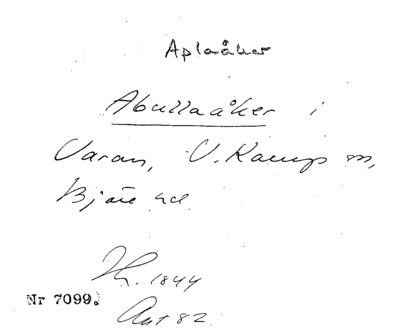 Aplaåker
Abullaåker i
Varan, V. Karup sn,
Bjäre hd
Lh. 1844
Nr 7099.
Akt 82